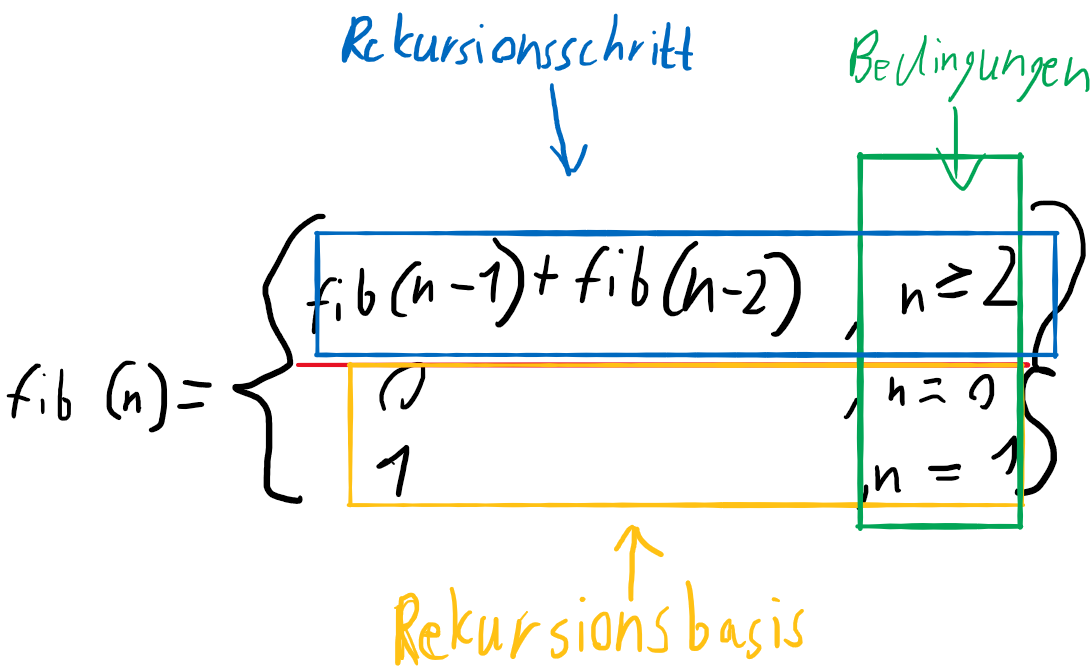 Rekursionsschritt
Bedingungen
fib(n-1)+fib(n-2) , n≥2
fib (n)=
0 , n=0
1 ,n=1
Rekursionsbasis